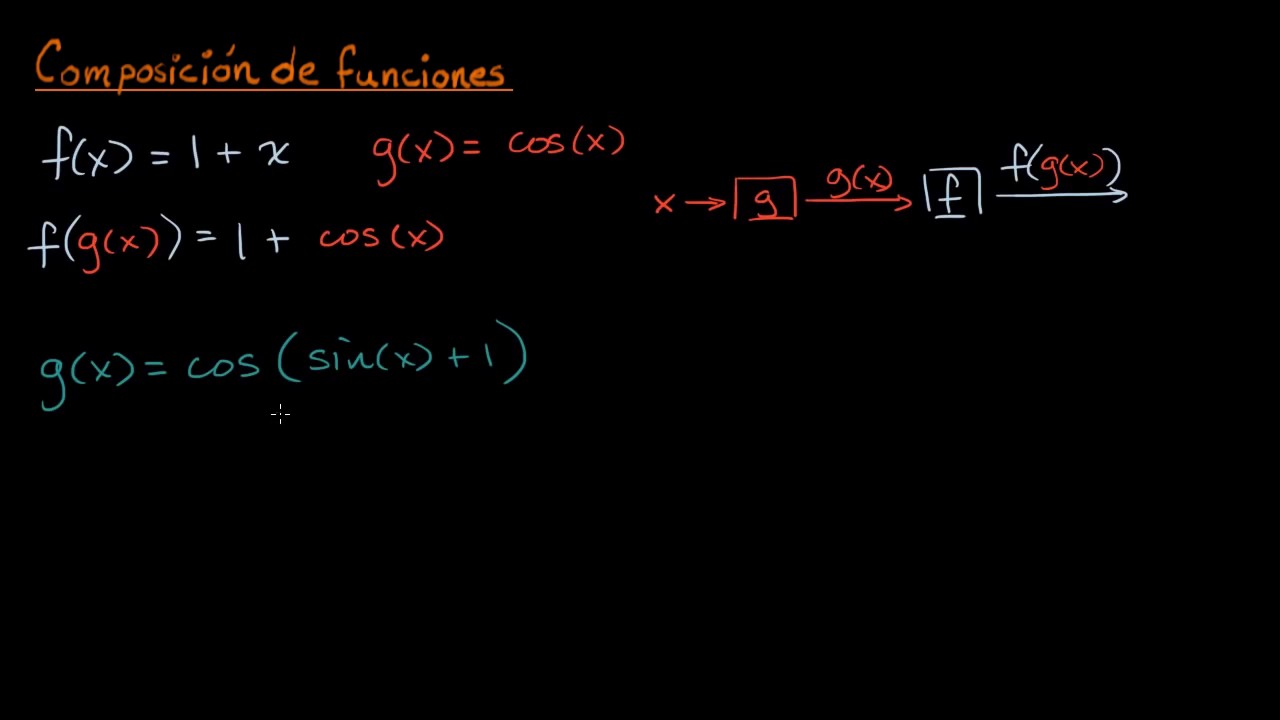 Composición de funciones
f(x) = 1 + x g(x) = cos(x)
f(g(x)) = 1 + cos(x)
x → g g(x) f f(g(x))
g(x) = cos(sin(x) + 1)